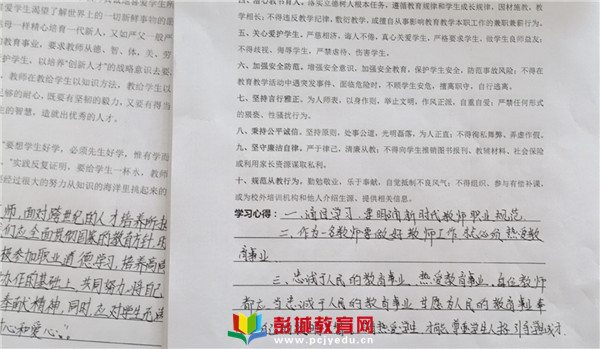 爱学生渴望了解世界上的一切新鲜事物的
母一样精心培育一代新人，又如严父一般严
教育事业，要求教师从德、智、体、美、劳
护学生，以培"创新人才"的战略意识去要
，教师在教给学生以知识方法，教给学生以
够的耐心，既要有坚韧的毅力，又要有得当
生的智慧，造就出优秀的人才。
要想学生好学，必须先生好学，惟有学而
"实践反复证明，要给学生一杯水，教师
经过很大的努力从知识的海洋里挑起来的
师，面对跨世纪的人才培养所
们应全面贯彻国家的教育方针
极参加职业道德学习，培养高尚
协作的基础上，共同努力，将自己
奉献精神，同时，应对学生无
心和爱心。
四、潜心教书育人。落实立德树人根本任务，遵循教育规律和学生成长规律，因材施教，教
学相长；不得违反教学纪律，敷衍教学，或擅自从事影响教育教学本职工作的兼职兼薪行为。
五、关心爱护学生。严慈相济，诲人不倦，真心关爱学生，严格要求学生，做学生良师益友；
不得歧视、侮辱学生，严禁虐待、伤害学生。
六、加强安全防范。增强安全意识，加强安全教育，保护学生安全，防范事故风险；不得在
教育教学活动中遇突发事件、面临危险时，不顾学生安危，擅离职守，自行逃离。
七、坚持言行雅正。为人师表，以身作则，举止文明，作风正派，自重自爱；严禁任何形式
的猥亵、性骚扰行为。
八、秉持公平诚信。坚持原则，处事公道，光明磊落，为人正直；不得徇私舞弊、弄虚作假。
九、坚守廉洁自律。严于律己，清廉从教；不得向学生推销图书报刊、教辅材料、社会保险
或利用家长资源谋取私利。
十、规范从教行为。勤勉敬业，乐于奉献，自觉抵制不良风气；不得组织、参与有偿补课，
或为校外培训机构和他人介绍生源、提供相关信息。
学习心得：一、通过学习，要明确新时代教师职业规范
二、作为一名教师要做好教师工作就必须热爱教
育事业
三、忠诚于人民的教育事业，热爱教育事业，每位教师
都应当忠诚于人民的教育事业，甘愿为人民的教育事业奉
热爱学生，才能尊重学生人格，引导
彭城教育网
www.pcjyedu.cn